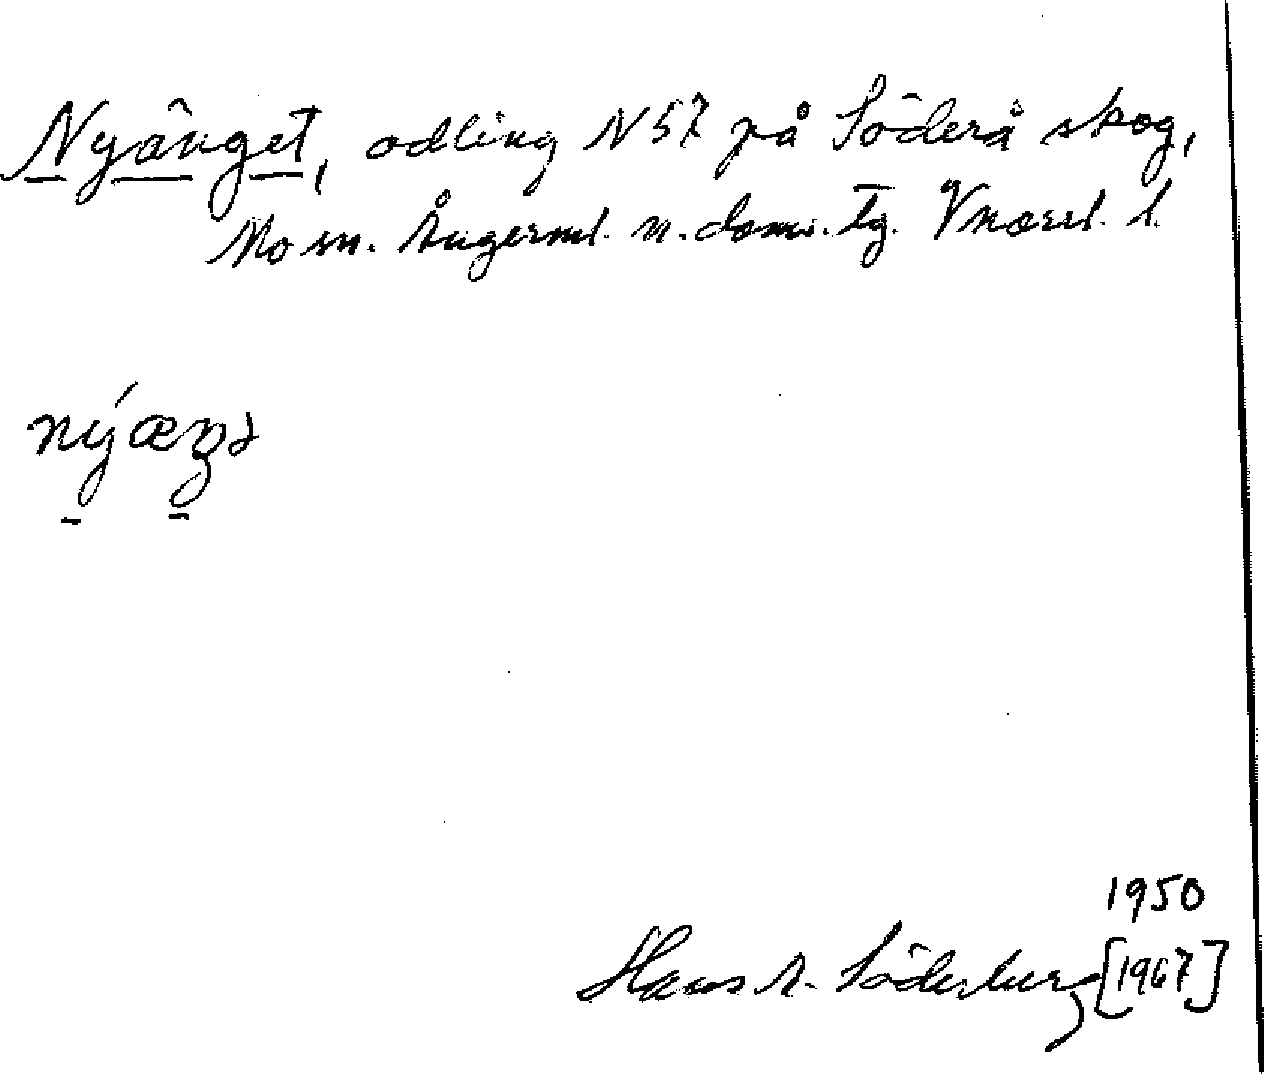 Nyänget, odling N57 på Söderå skog,
Mo sn. Ångerml. n. doms. Tg. Vnorrl. l.
nýæŋə
1950
Hans A. Söderberg [1967]